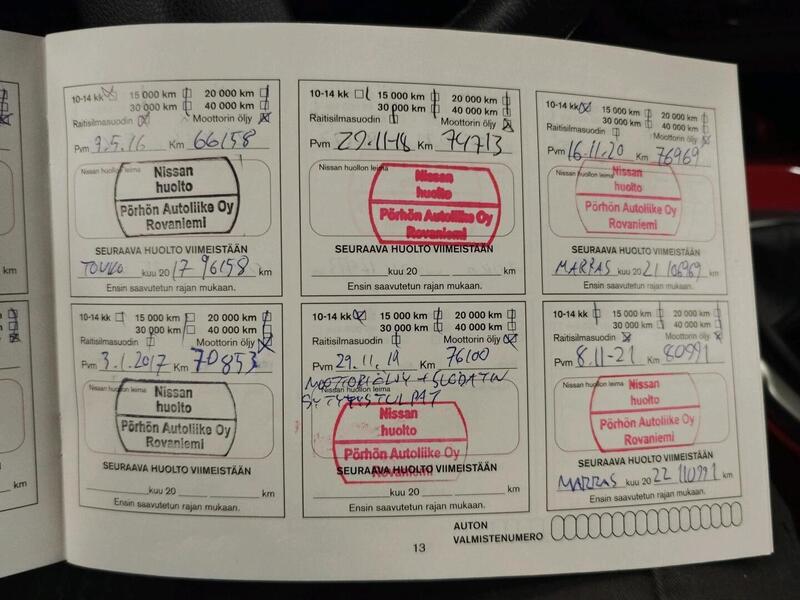 10-14 kk 15 000 km 20 000 km
30 000 km 40 000 km
Raitisilmasuodin Moottorin öljy
Pvm 9.5.16 Km 66158
Nissan huollon leima
Nissan
huolto
Pörhön Autoliike Oy
Rovaniemi
SEURAAVA HUOLTO VIIMEISTÄÄN
TOUKO kuu 20 17 96158 km
Ensin saavutetun rajan mukaan.
10-14 kk 15 000 km 20 000 km
30 000 km 40 000 km
Raitisilmasuodin Moottorin öljy
Pvm 3.1.2017 Km 70853
Nissan huollon leima
Nissan
huolto
Pörhön Autoliike Oy
Rovaniemi
SEURAAVA HUOLTO VIIMEISTÄÄN
kuu 20 km
Ensin saavutetun rajan mukaan.
10-14 kk 15 000 km 20 000 km
30 000 km 40 000 km
Raitisilmasuodin Moottorin öljy
Pvm 29.11-18 Km 74713
Nissan huollon leima
Nissan
huolto
Pörhön Autoliike Oy
Rovaniemi
SEURAAVA HUOLTO VIIMEISTÄÄN
kuu 20 km
Ensin saavutetun rajan mukaan.
10-14 kk 15 000 km 20 000 km
30 000 km 40 000 km
Raitisilmasuodin Moottorin öljy
Pvm 29.11.19 Km 76100
MOOTTORIÖLJY + SUODATIN
Nissan huollon leima
SYTYTYSTULPAT
Nissan
huolto
Pörhön Autoliike Oy
Rovaniemi
SEURAAVA HUOLTO VIIMEISTÄÄN
kuu 20 km
Ensin saavutetun rajan mukaan.
10-14 kk 15 000 km 20 000 km
30 000 km 40 000 km
Raitisilmasuodin Moottorin öljy
Pvm 16.11.20 Km 76969
Nissan huollon leima
Nissan
huolto
Pörhön Autoliike Oy
Rovaniemi
SEURAAVA HUOLTO VIIMEISTÄÄN
MARRAS kuu 20 21 106969 km
Ensin saavutetun rajan mukaan.
10-14 kk 15 000 km 20 000 km
30 000 km 40 000 km
Raitisilmasuodin Moottorin öljy
Pvm 8.11-21 Km 80991
Nissan huollon leima
Nissan
huolto
Pörhön Autoliike Oy
Rovaniemi
SEURAAVA HUOLTO VIIMEISTÄÄN
MARRAS kuu 20 22 110991 km
Ensin saavutetun rajan mukaan.
AUTON
VALMISTENUMERO
13
km
km